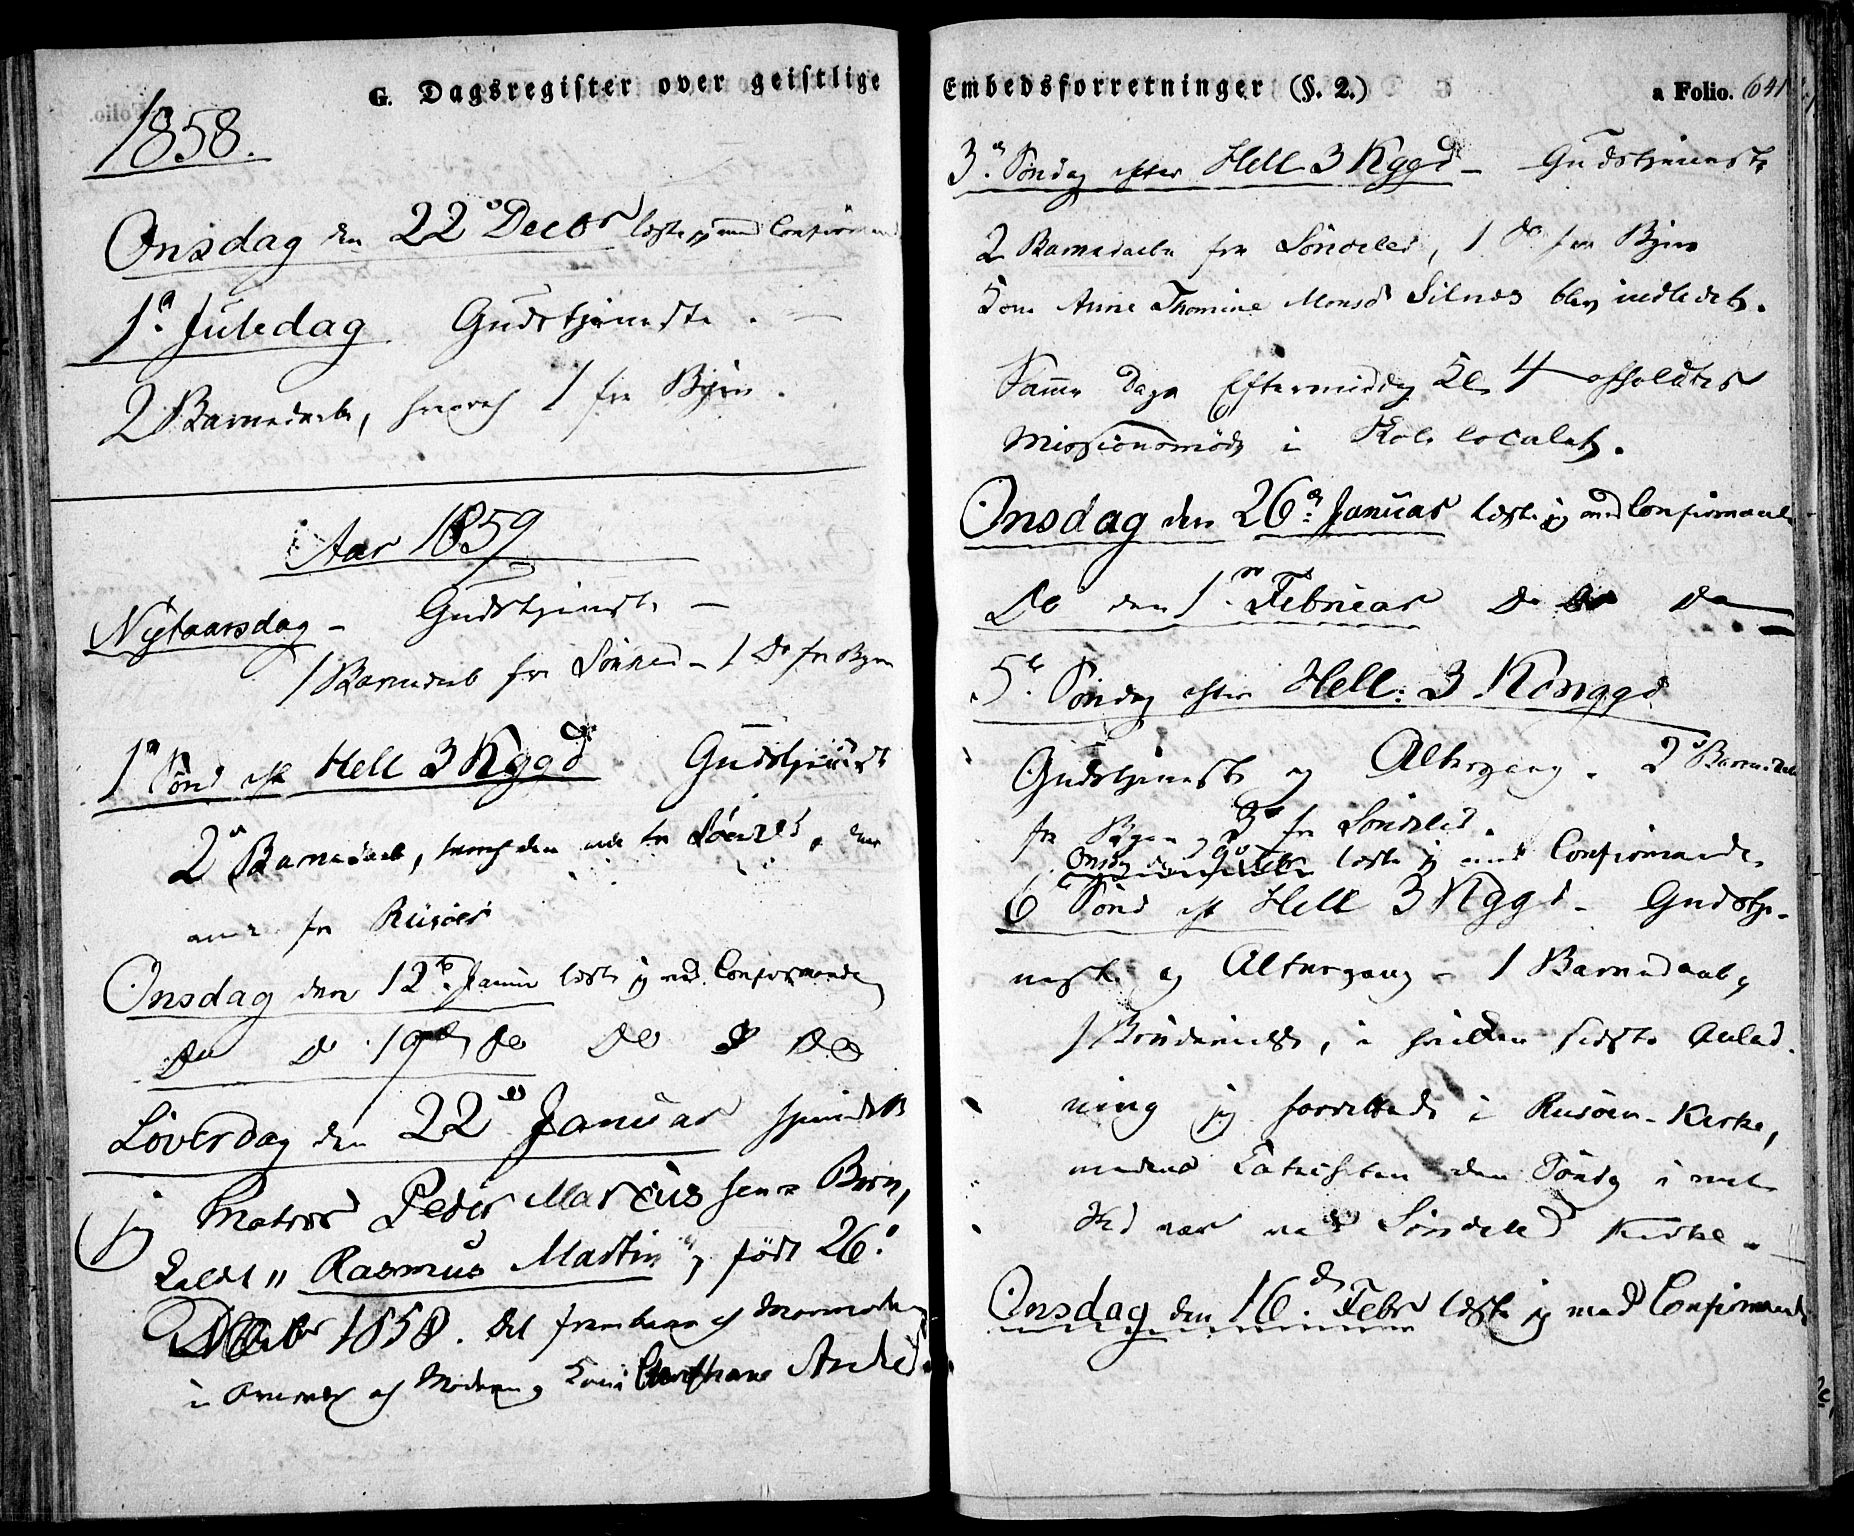 G. Dagsregister over geistlige
1858.
Onsdag den 22de Decbr læste jeg med Confirmand
1ste Juledag Gudstjeneste. —
2 Barnedaab, hvoraf 1 fra Byen.
Aar 1859
Nytaarsdag - Gudstjeneste —
1 Barnedaab fra Sönneled - 1 Do fra Byen
1ste Sönd eft Hell 3 Kggd Gudstjeneste
2de Barnedaab, hvoraf den ene fra, den
anden fra Riisöer
Onsdag den 12te Januar læste jeg med Confirmanden
Do Do 19de Do Do Do
Löverdag den 22de Januar hjemdöbte
jeg Matros Peder Marcussens Barn,
kaldt "Rasmus Martin", födt 26de
1858. Det frembaaret af Mormoderen
i af Moderen Anded
Embedsforretninger (§. 2.) a Folio. 641
3de Söndag efter Hell 3 Kggd - Gudstjeneste
2 Barnedaab fra Söndeled, 1 Do fra Byen
Kone Anne Thomine Monsd Silnes blev indledet.
Samme Dags Eftermiddag Kl. 4 afholdtes
Missionsmöde i Skolelocalet.
Onsdag den 26de Januar læste jeg med Confirmand
Do den 1ste Februar Do Do
5te Söndag efter Hell: 3 Konggd
Gudstjeneste og Altergang. 2de Barnedaab
fra Byen og 3de fra Söndeled.
Onsdag den 9de Febr læste jeg med Confirmande.
6te Sönd eft Hell 3 Kggd - Gudstje-
neste og Altergang - 1 Barnedaab og
1 Brudevielse, i hvilken sidste Anled-
ning jeg forrettede i Riisöer-Kirke,
medens Catecheten den Söndag i mit
Sted var ved Söndeled Kirke.
Onsdag den 16de Febr læste jeg med Confirmande